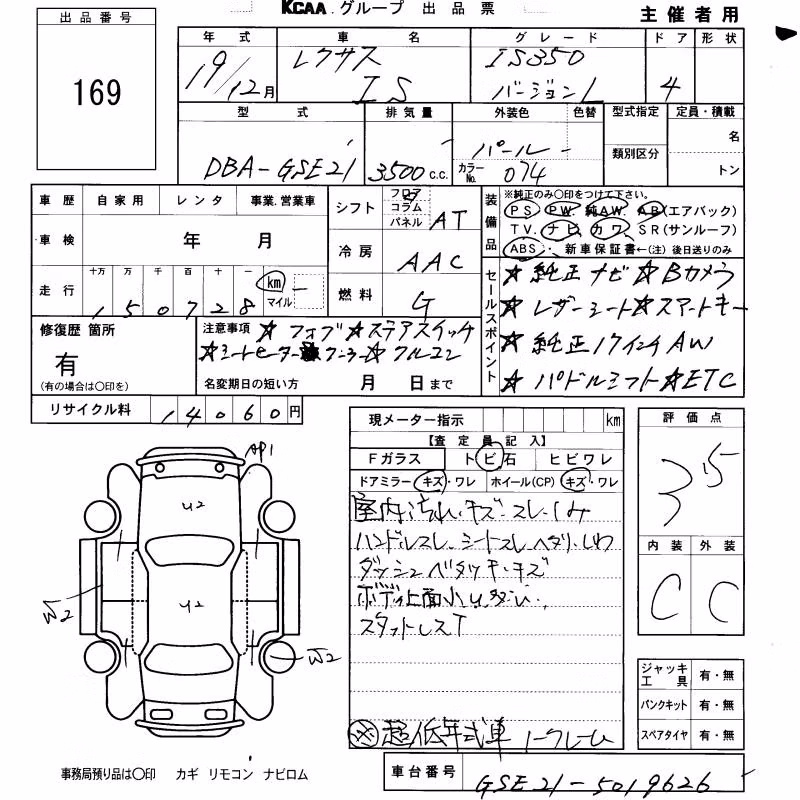 KCAA グループ 出品票
主催者用
出品番号
169
年式 車名 グレード ドア 形状
19/12月 レクサス IS IS350 バージョンL 4
型式 排気量 外装色 色替 型式指定 定員・積載
DBA-GSE21 3500c.c. パール カラーNo. 074 類別区分 名 トン
車歴 自家用 レンタ 事業.営業車
車検 年 月
走行 十万 万 千 百 十 一 km マイル
150728
シフト フロア コラム パネル AT
冷房 AAC
燃料 G
装備品 ※純正のみ○印をつけて下さい。
PS PW 純AW AB(エアバック)
TV. ナビ カワ SR(サンルーフ)
ABS・ 新車保証書←(注) 後日送りのみ
セールスポイント
☆純正ナビ☆Bカメラ
☆レザーシート☆スマートキー
☆純正17インチAW
☆パドルシフト☆ETC
修復歴 箇所
有
(有の場合は○印を)
注意事項 ☆フォブ☆ステアスイッチ
☆シートヒーター クーラー☆クルコン
名変期日の短い方 月 日まで
リサイクル料 14060円
現メーター指示 km
【査定員記入】
Fガラス トビ石 ヒビワレ
ドアミラー キズ・ワレ ホイール(CP) キズ・ワレ
室内汚れ.キズ.スレ.しみ
ハンドルスレ.シートスレ.ヘタリ.しわ
ダッシュベタツキ.キズ
ボディ上面小U多い.
スタットレスT
※超低年式車 1-フレーム
車台番号 GSE21-5019626
評価点
3.5
内装 外装
C C
ジャッキ工具 有・無
パンクキット 有・無
スペアタイヤ 有・無
AP1
U2
U2
W2
W2
事務局預り品は○印 カギ リモコン ナビロム